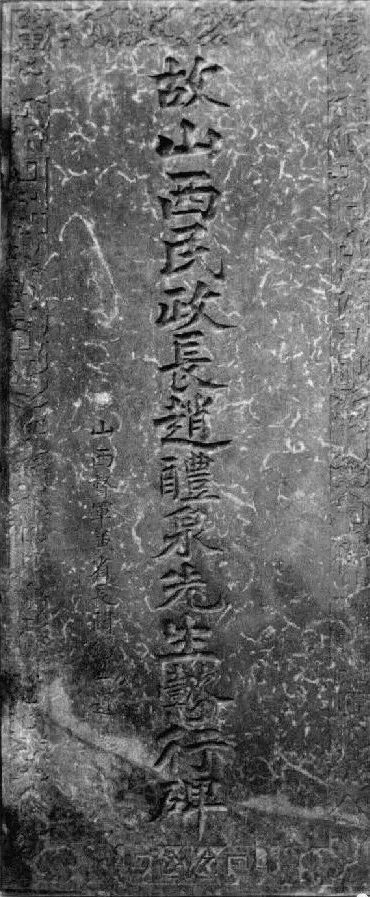 故山西民政長趙醴泉先生懿行碑
山西督軍兼省長